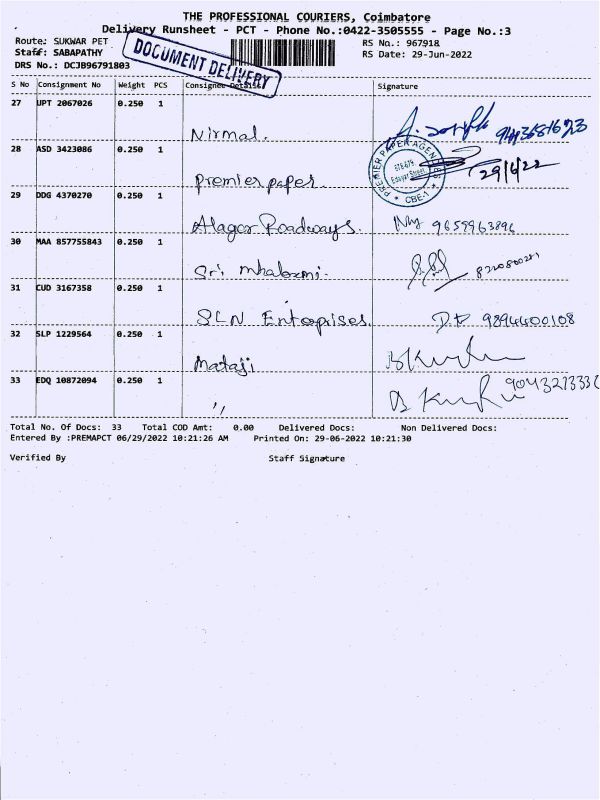 THE PROFESSIONAL COURIERS, Coimbatore
Delivery Runsheet - PCT - Phone No.:0422-3505555 - Page No.:3
Route: SUKWAR PET RS No.: 967918
Staff: SABAPATHY RS Date: 29-Jun-2022
DRS No.: DCJB96791803
DOCUMENT DELIVERY
S No Consignment No Weight PCS Consignee Details Signature
27 UPT 2067026 0.250 1
Nirmal.
28 ASD 3423086 0.250 1
PREMIER PAPER AGENCIES
CBE-1
29/6/22
Premier paper
29 DDG 4370270 0.250 1
Alagar Roadways. 9659963896
30 MAA 857755843 0.250 1
Sri mhalaxmi.
31 CUD 3167358 0.250 1
SLN Enterprises. 9894400108
32 SLP 1229564 0.250 1
Mataji
33 EDQ 10872094 0.250 1
"
Total No. Of Docs: 33 Total COD Amt: 0.00 Delivered Docs: Non Delivered Docs:
Entered By :PREMAPCT 06/29/2022 10:21:26 AM Printed On: 29-06-2022 10:21:30
Verified By Staff Signature